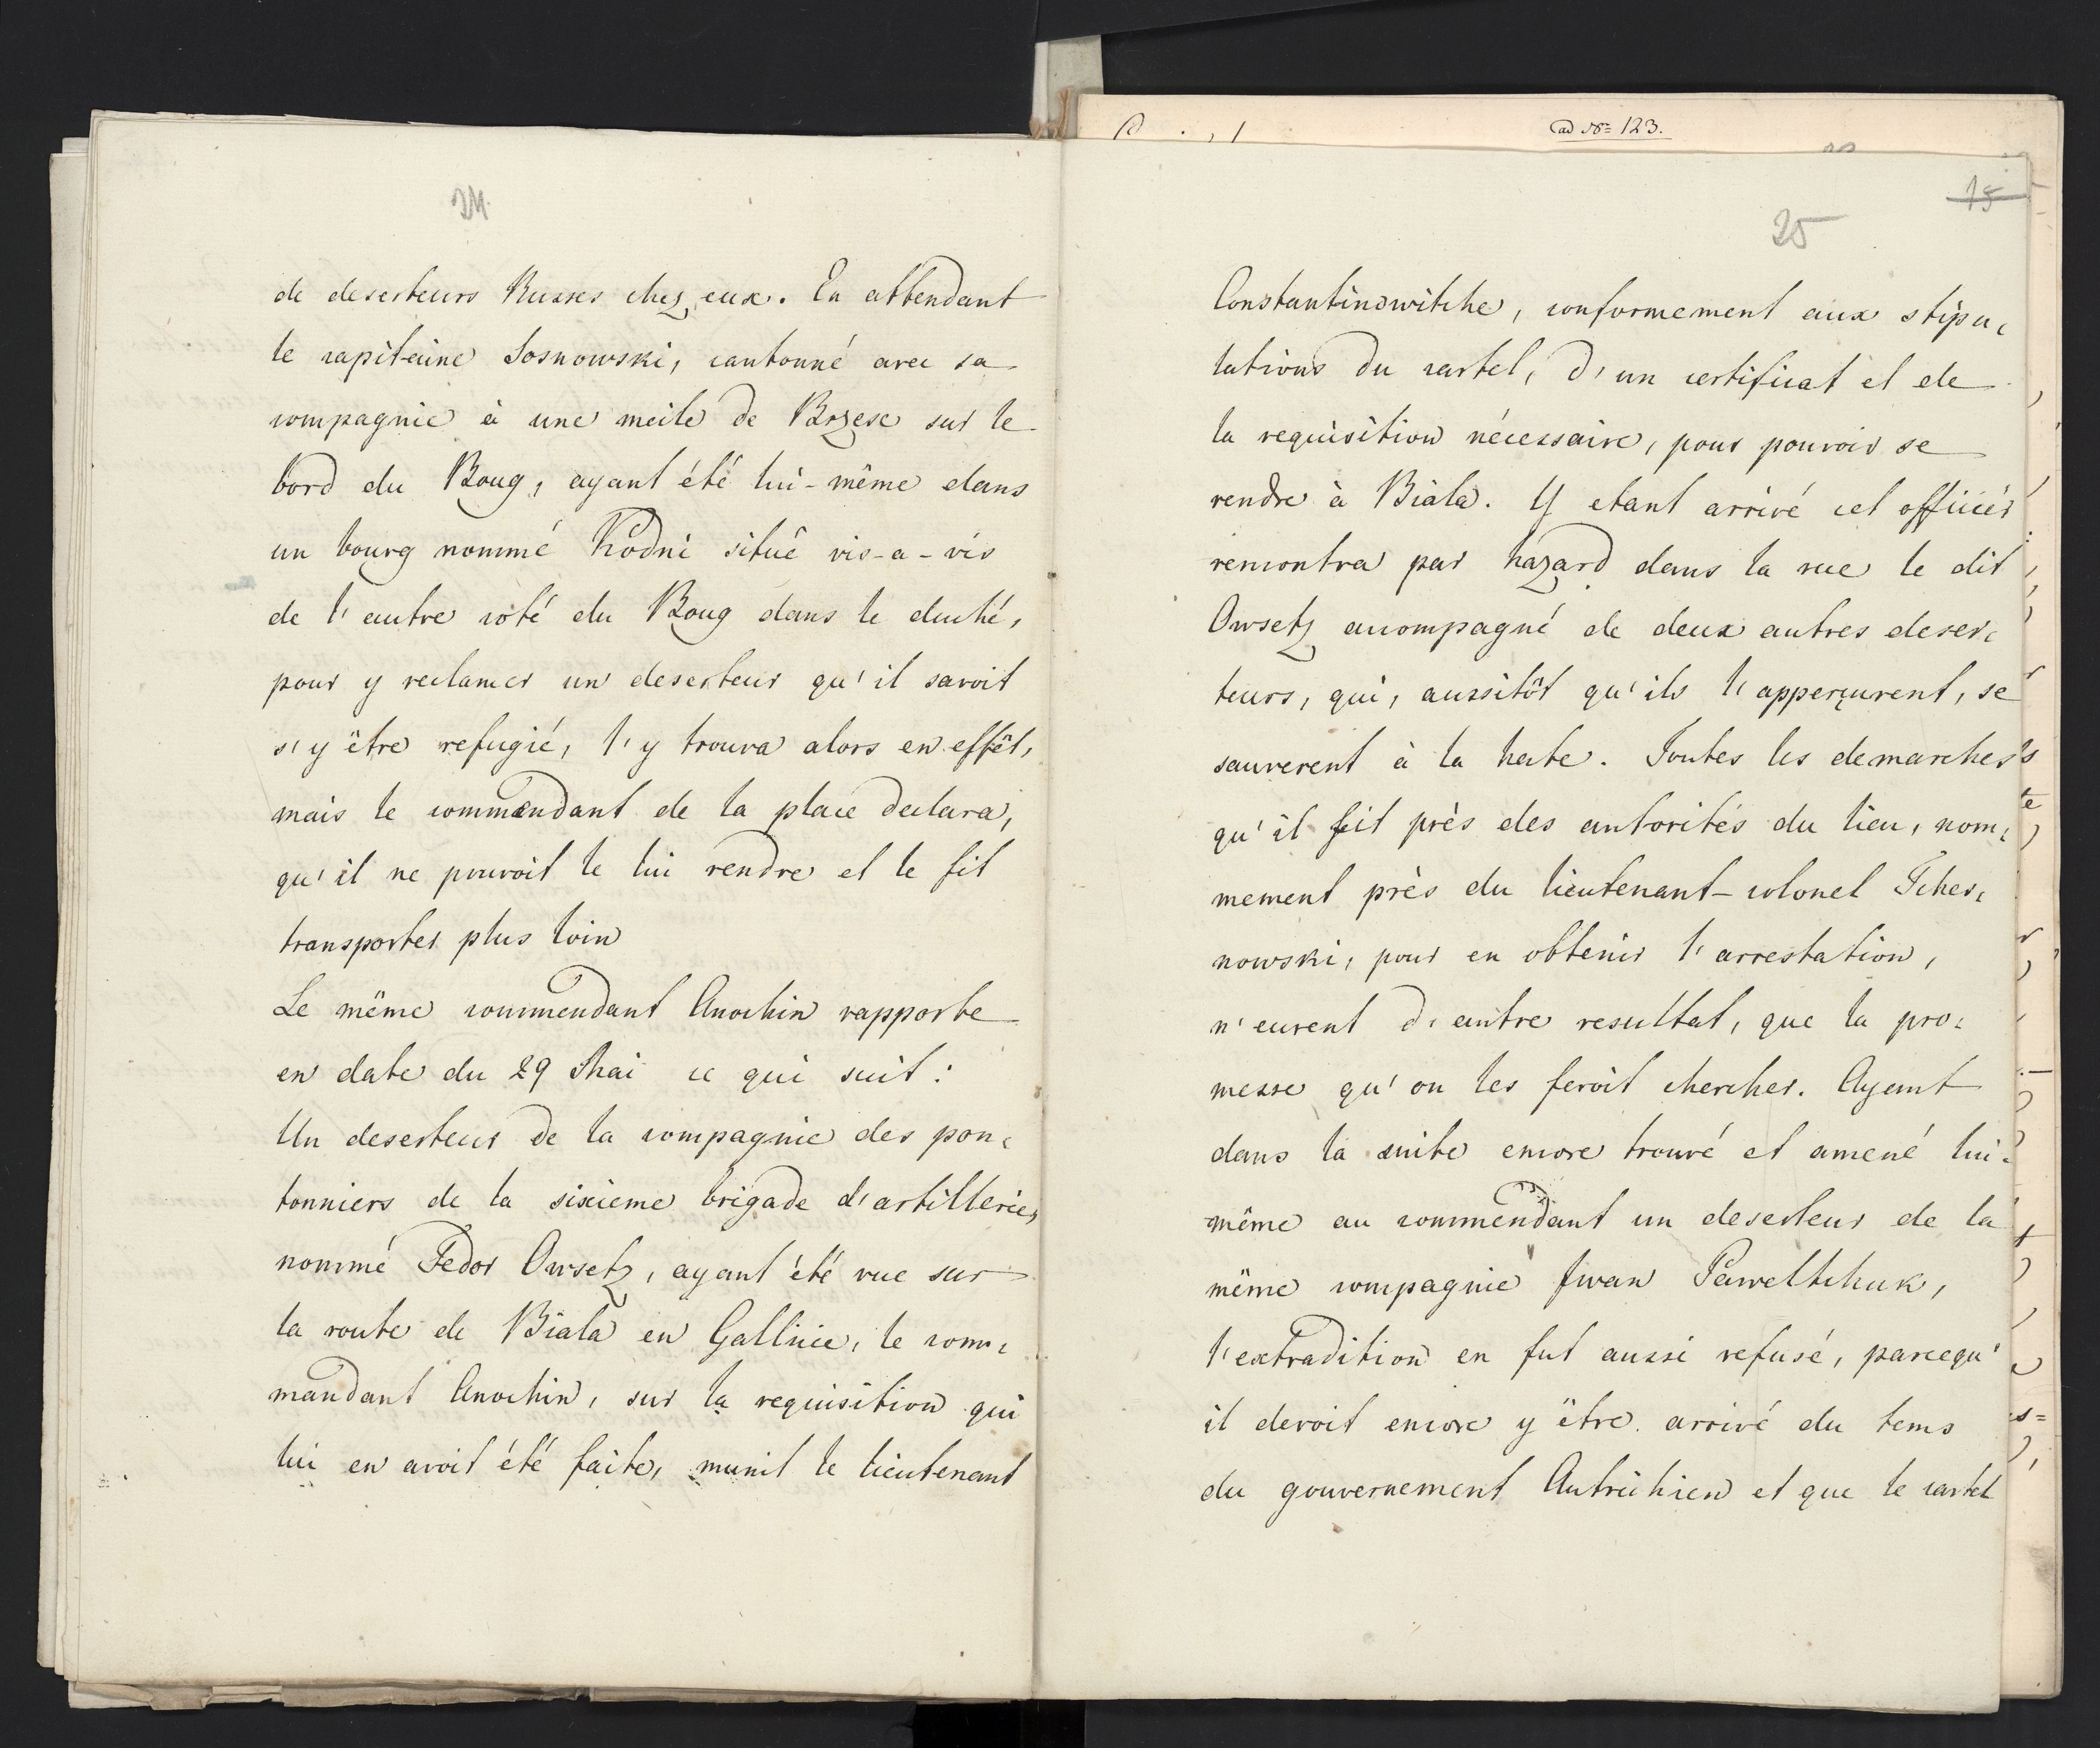 24.
de deserteurs Russes chez eux. En attendant
le capitaine Sosnowski, cantonné avec sa
compagnie à une meile de Brzesc sur le
bord du Boug, ayant été lui-même dans
un bourg nommé Kodni situé vis-a-vis
de l'autre coté du Boug dans le duché,
pour y reclamer un deserteur qu'il savoit
s'y être refugié, l'y trouva alors en effèt,
mais le commendant de la place declara,
qu'il ne pouvoit le lui rendre et le fit
transporter plus loin
Le même commendant Anochin rapporte
en date du 29 Mai ce qui suit:
Un deserteur de la compagnie des pon=
tonniers de la sixieme brigade d'artillerie,
nommé Fedor Owsetz, ayant été vue sur
la route de Biala en Gallicie, le com=
mandant Anochin, sur la requisition qui
lui en avoit été faite, munit le lieutenant
ad No 123.
15
25
Constantinowitche, conformement aux stipu=
lations du cartel, d'un certificat et de
la requisition nécessaire, pour pouvoir se
rendre à Biala. Y etant arrivé cet officiér
rencontra par hazard dans la rue le dit
Owsetz accompagné de deux autres deser=
teurs, qui, aussitôt qu'ils l'apperçurent, se
sauverent à la hate. Toutes les demarches
qu'il fit près des autorités du lieu, nom=
mement près du lieutenant-colonel Tcher=
nowski, pour en obtenir l'arrestation,
n'eurent d'autre resultat, que la pro=
messe qu'on les feroit chercher. Ayant
dans la suite encore trouvé et amené lui=
même au commendant un deserteur de la
même compagnie Iwan Paweltchuk,
l'extradition en fut aussi refusé, parcequ'
il devoit encore y être arrivé du tems
du gouvernement Autrichien et que le cartel